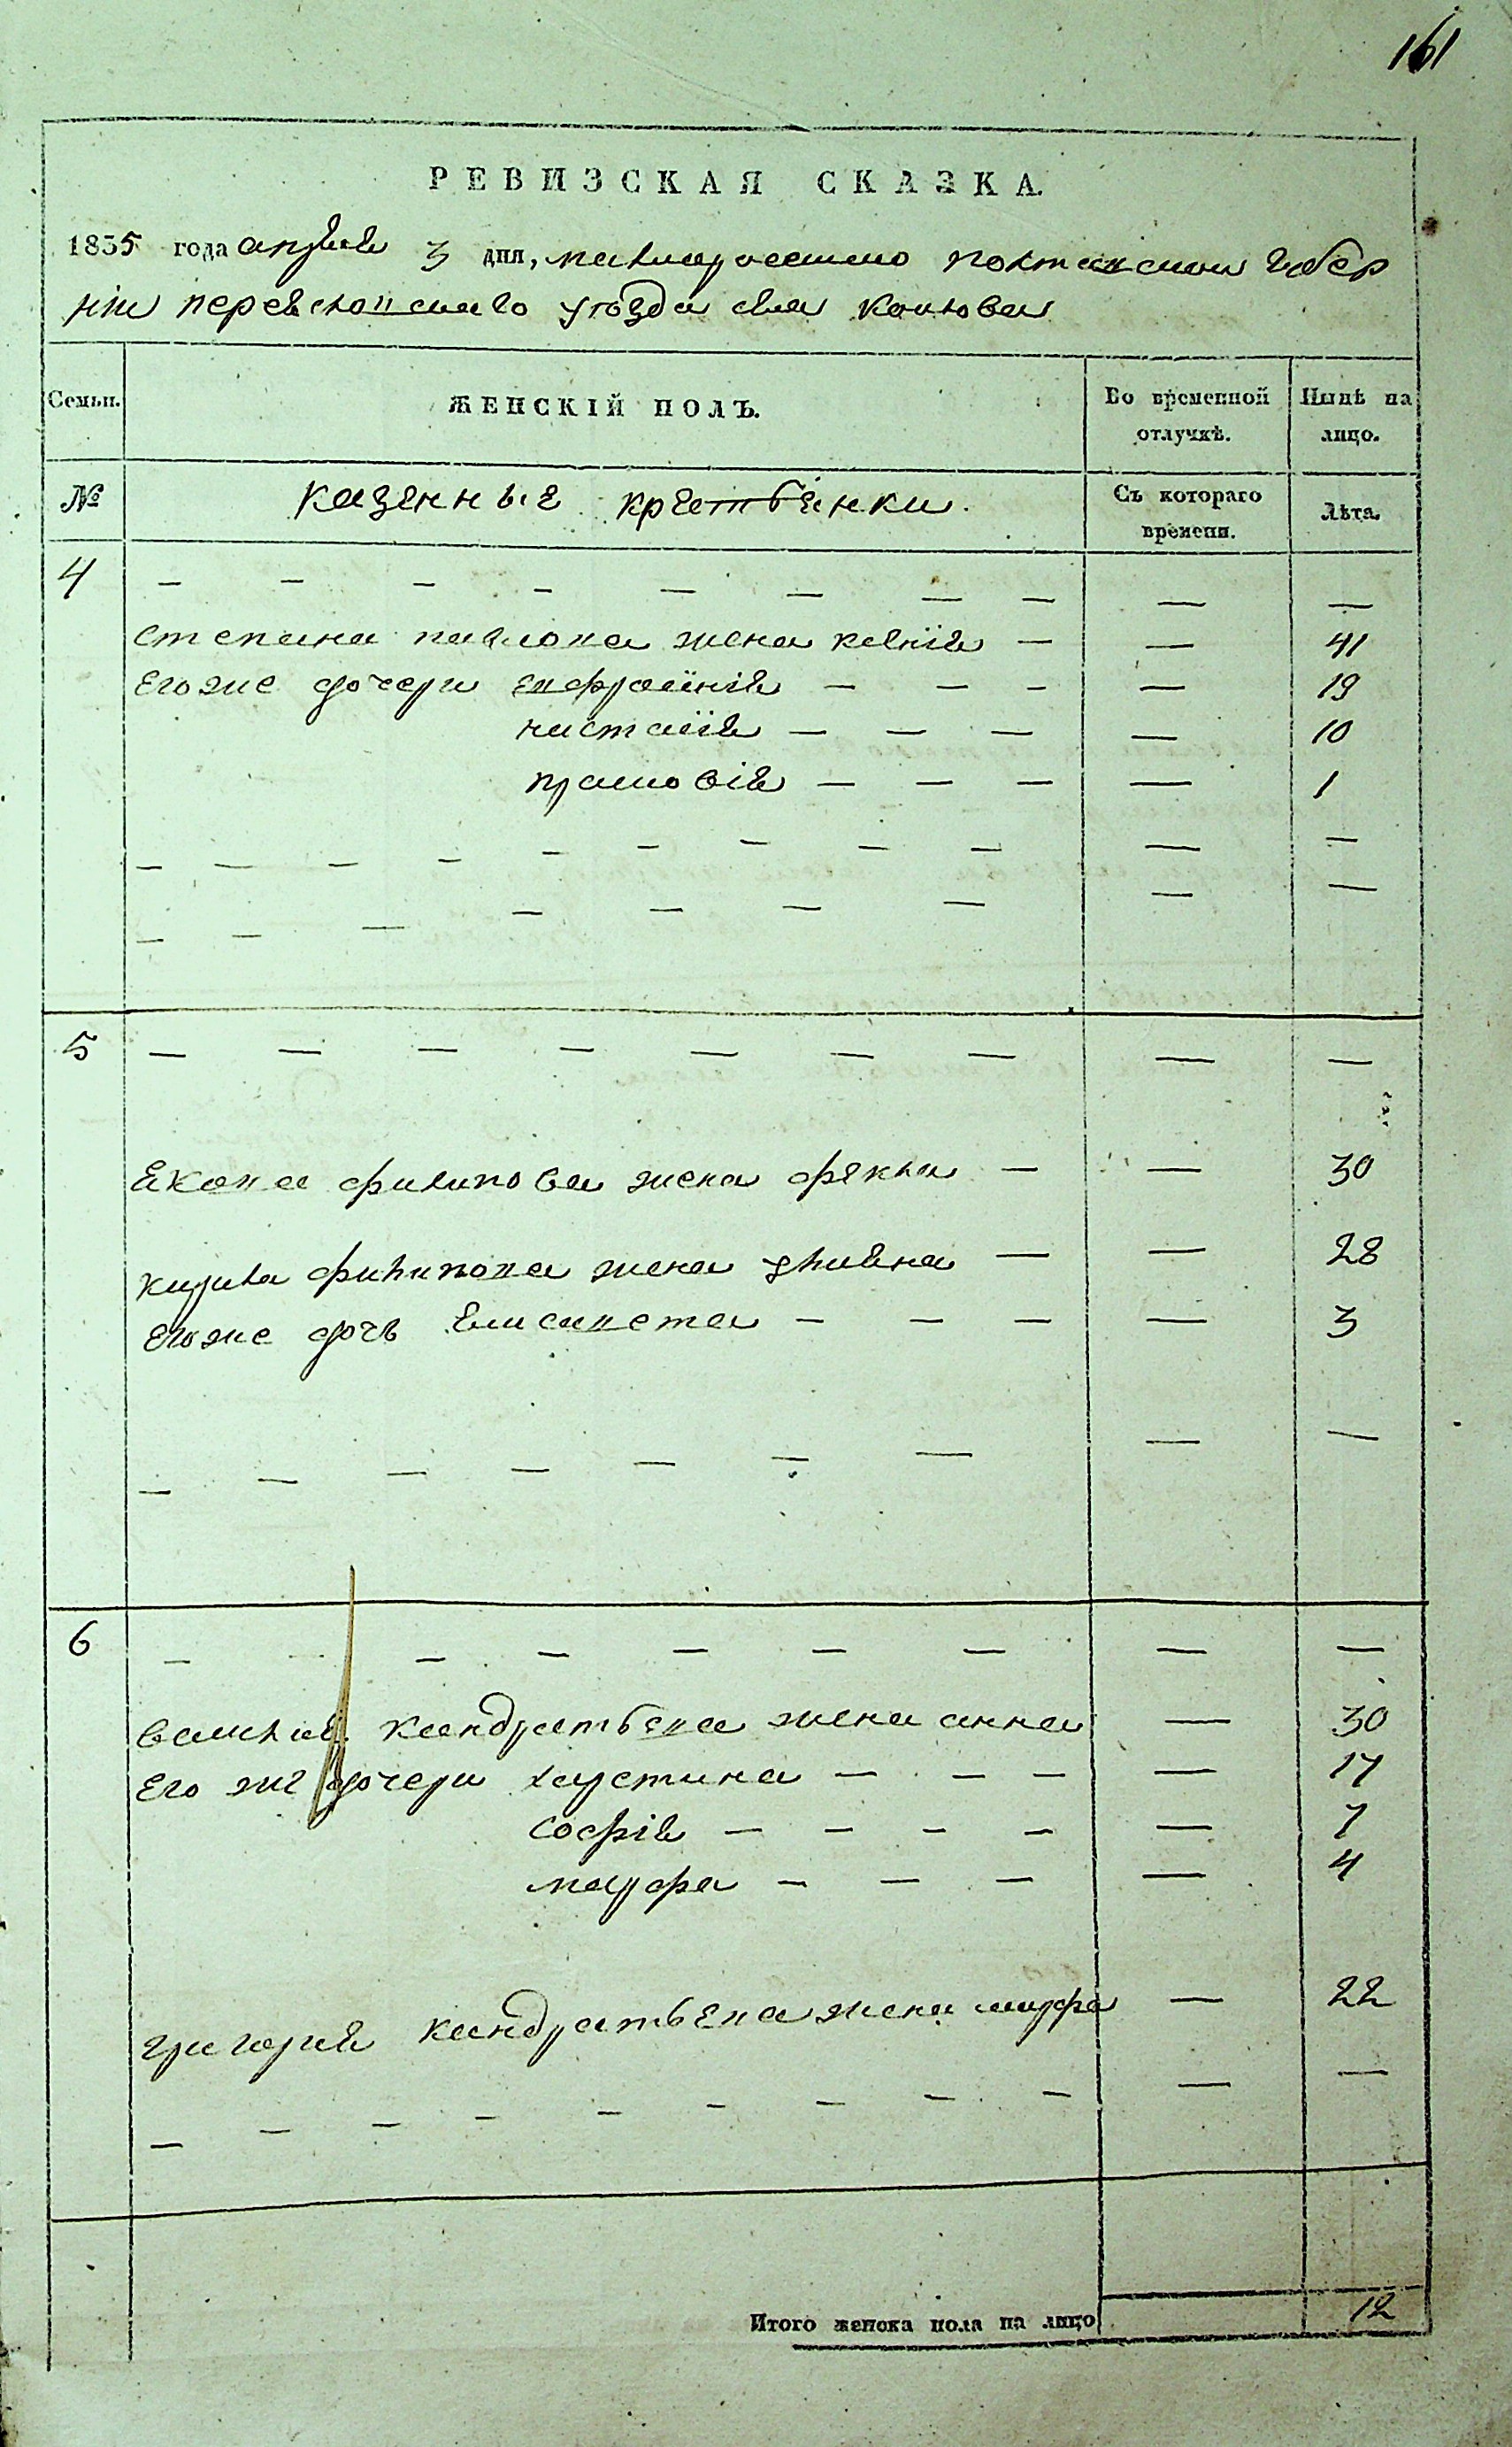 161
РЕВИЗСКАЯ СКАЗКА.
1835 года апреля 3 дня, малиросейско полтавской губер
ніи переяславского уѣзда села
Семьи. ЖЕНСКІЙ ПОЛЪ. Во временной отлучкѣ. Нынѣ на лицо.
№ казенные крестьянки. Съ котораго времени. Лѣта.
4 — — — — — — — — — —
степана павлова жена ксенія — — 41
его же дочери евфросінія — — — — 19
настасія — — — — 10
прасковія — — — — 1
— — — — — — — — — — —
— — — — — — — — —
5 — — — — — — — — —
якова филипова жена фекла — — 30
кирила филипова жена улияна — — 28
его же дочь елисавета — — — — 3
— — — — — — — — —
6 — — — — — — — —
василия кандратьева жена анна — 30
его же дочери христина — — — — 17
софія — — — — — 7
марфа — — — — 4
григория кандратьева жена марфа — 22
— — — — — — — — — — —
Итого женска пола на лицо 12